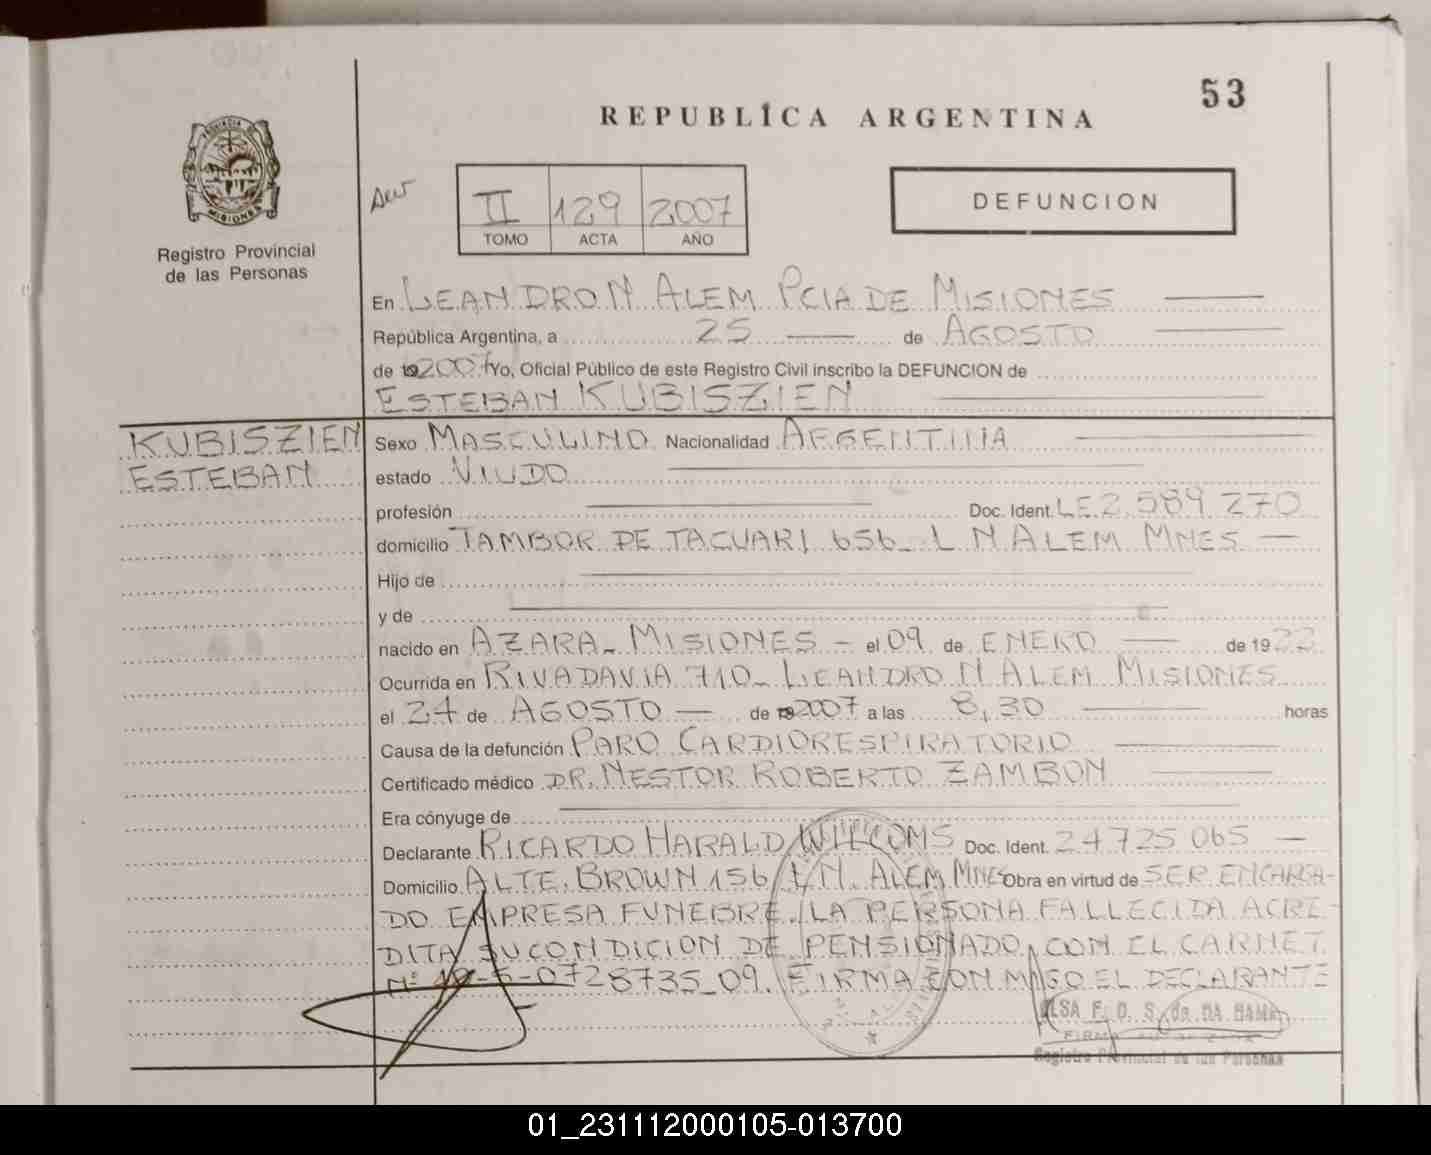 53
REPUBLICA ARGENTINA
PROVINCIA
MISIONES
Registro Provincial
de las Personas
II 129 2007
TOMO ACTA AÑO
DEFUNCION
En LEANDRO N ALEM PCIA DE MISIONES
República Argentina, a 25 de AGOSTO
de 2007 Yo, Oficial Público de este Registro Civil inscribo la DEFUNCION de
ESTEBAN KUBISZIEN
KUBISZIEN
ESTEBAN
Sexo MASCULINO Nacionalidad ARGENTINA
estado VIUDO
profesión Doc. Ident. LE 2.589.270
domicilio TAMBOR DE TACUARI 656 - L N ALEM MNES
Hijo de
y de
nacido en AZARA - MISIONES - el 09 de ENERO de 19
Ocurrida en RIVADAVIA 710 - LEANDRO N ALEM MISIONES
el 24 de AGOSTO de 2007 a las 8,30 horas
Causa de la defunción PARO CARDIORESPIRATORIO
Certificado médico DR. NESTOR ROBERTO ZAMBON
Era cónyuge de
Declarante RICARDO HARALD WILLCOMS Doc. Ident. 24 725 065
Domicilio ALTE. BROWN 156 L N. ALEM MNES Obra en virtud de SER ENCARGA-
DO EMPRESA FUNEBRE. LA PERSONA FALLECIDA ACRE-
DITA SU CONDICION DE PENSIONADO CON EL CARNET
Nº -0728735-09. FIRMA CON MIGO EL DECLARANTE
ELSA F. D. S. de
Registro Provincial de las Personas
01_231112000105-013700